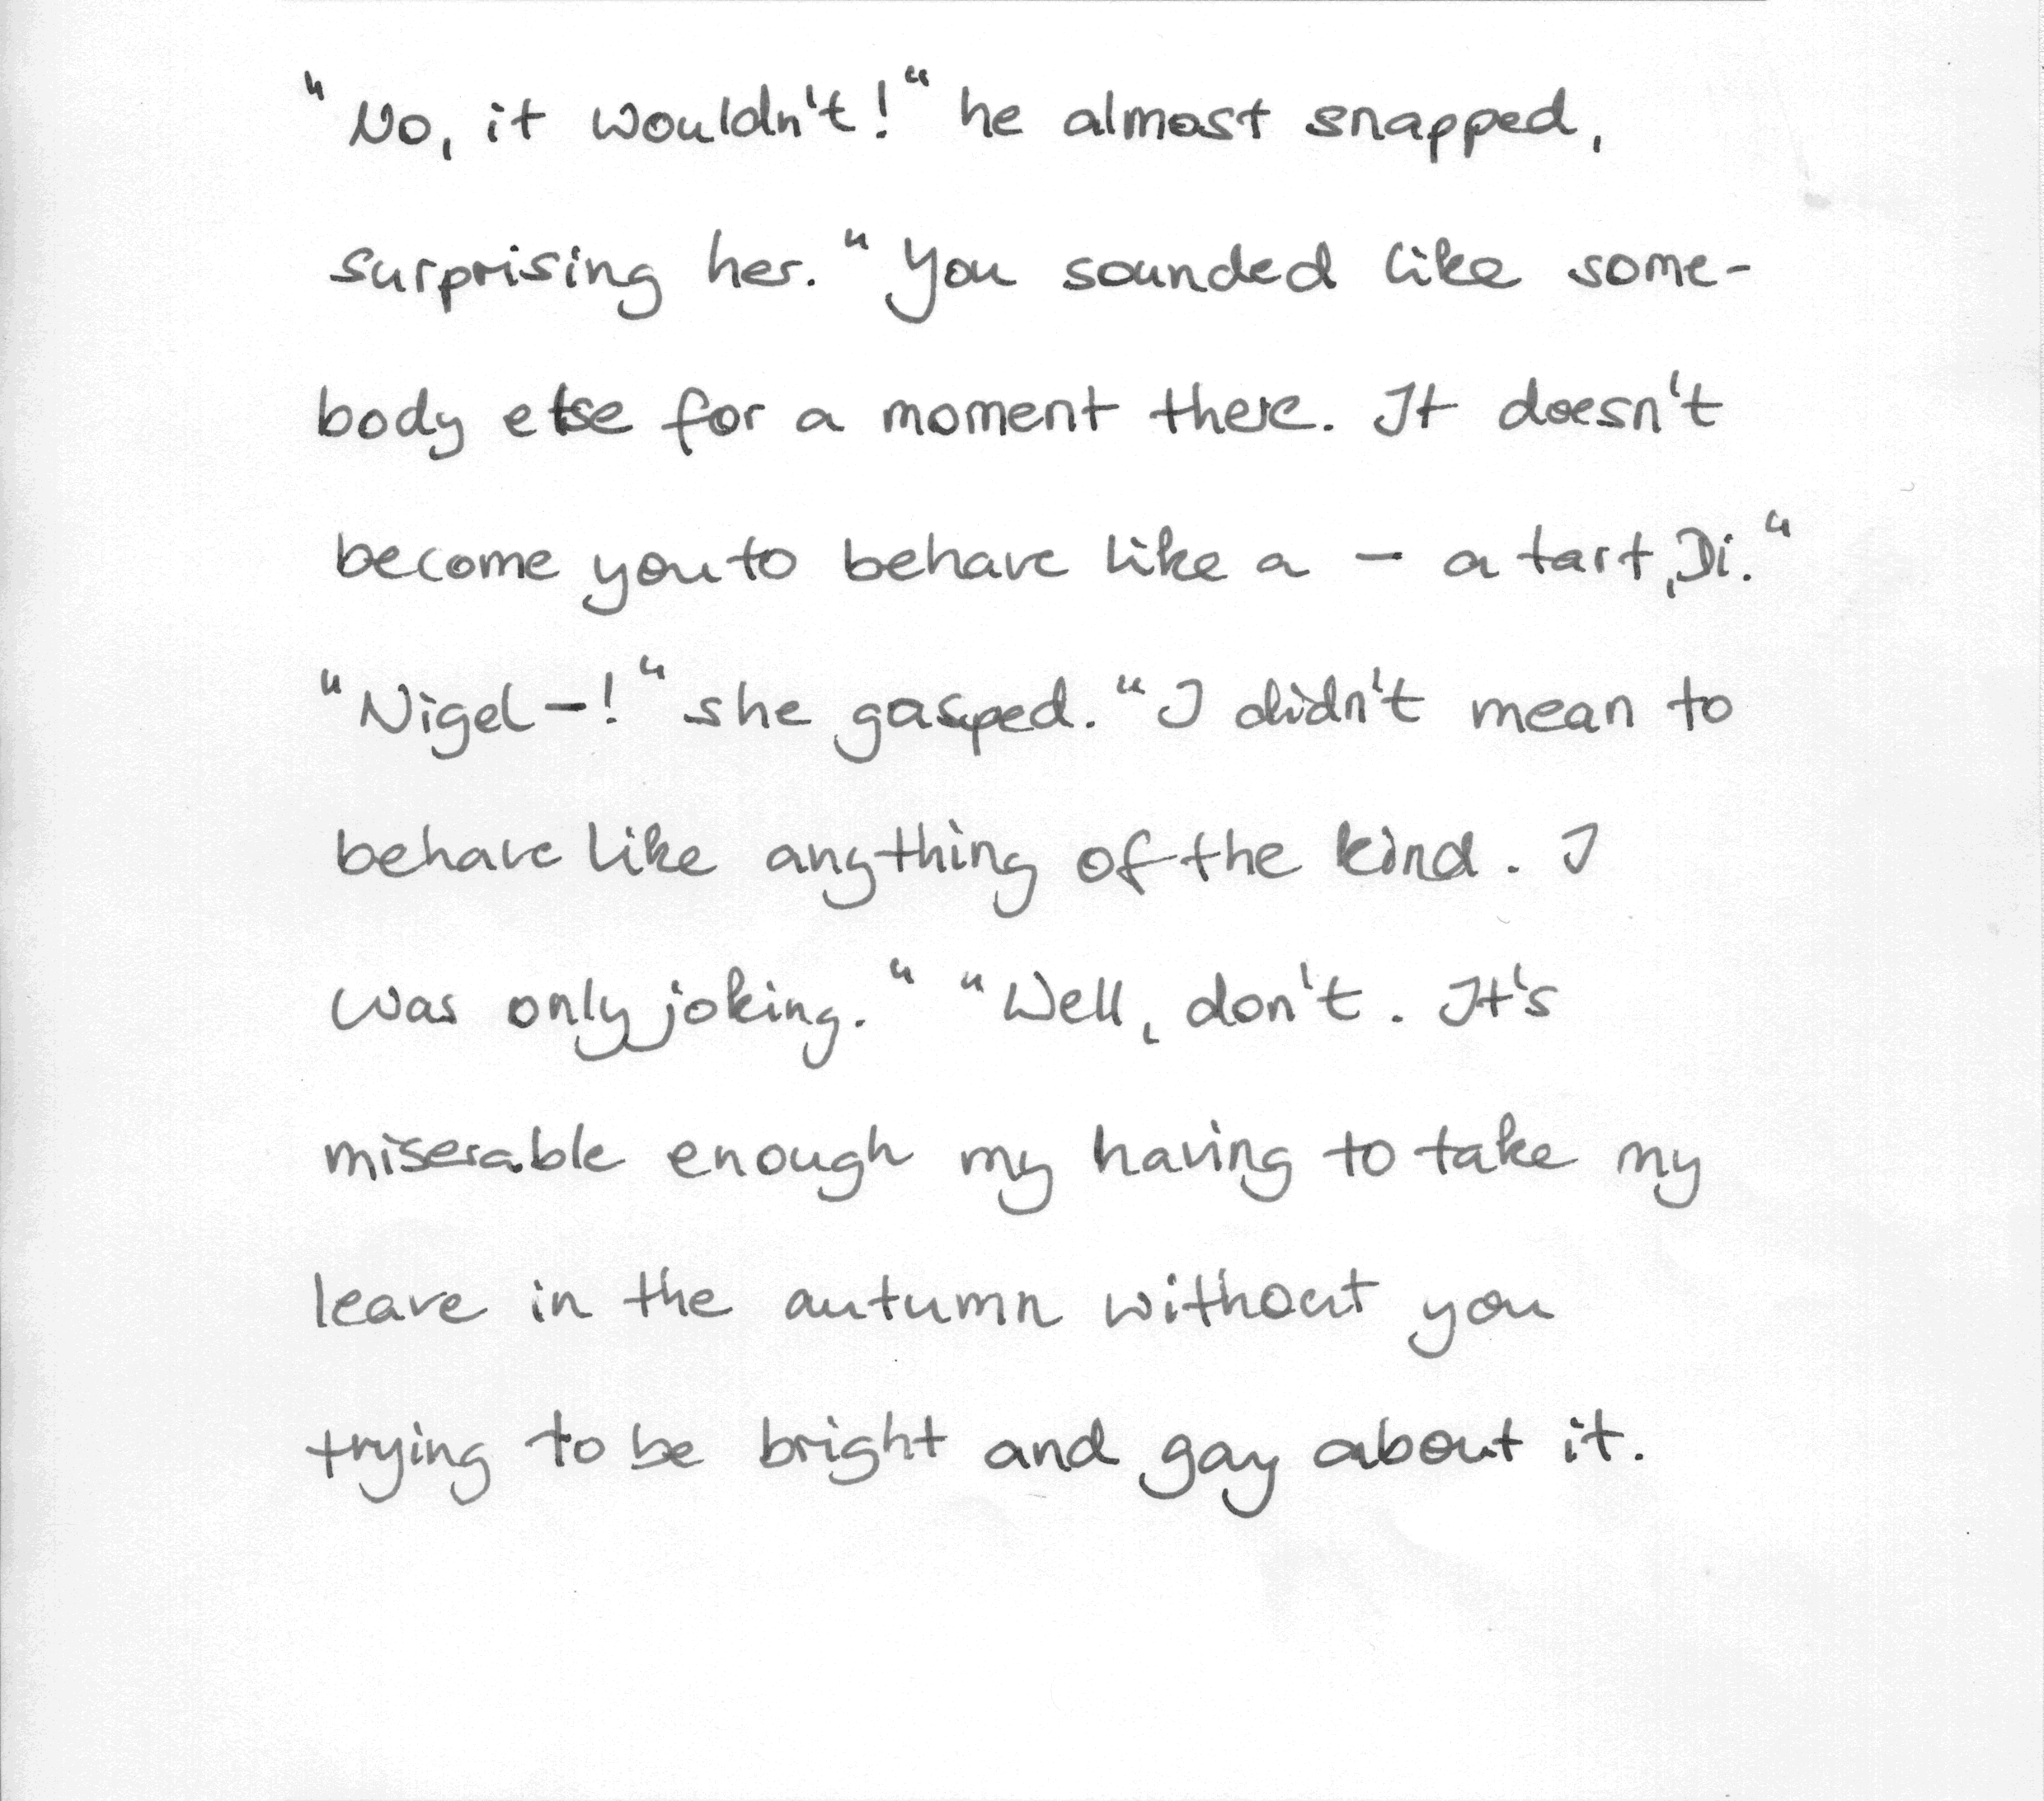 "No, it wouldn't!" he almost snapped,
surprising her. "You sounded like some-
body else for a moment there. It doesn't
become you to behave like a - a tart, Di."
"Nigel-!" she gasped. "I didn't mean to
behave like anything of the kind. I
was only joking." "Well, don't. It's
miserable enough my having to take my
leave in the autumn without you
trying to be bright and gay about it.